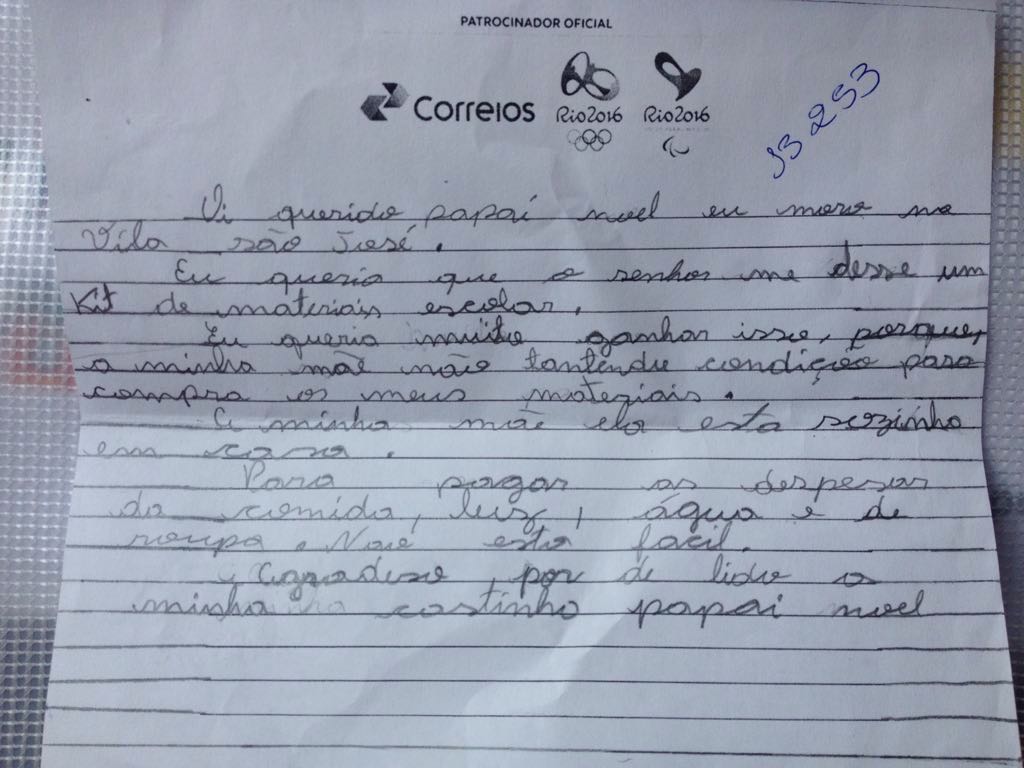 PATROCINADOR OFICIAL
Correios Rio2016 Rio2016
13 253
Oi querido papai noel eu moro na
Vila são José.
Eu queria que o senhor me desse um
Kit de materiais escolar.
Eu queria muito ganhar isso, porque,
a minha mãe não condição para
compra os meus materiais.
A minha mãe ela esta sozinha
em casa.
Para pagar as despesas
da comida, luz, água e de
roupa. Não esta facil.
Agradeso, por de lido a
minha castinha papai noel